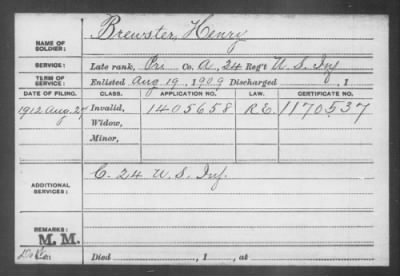 NAME OF SOLDIER: Brewster, Henry
SERVICE: Late rank, Pri Co. A, 24 Reg't U. S. Inf
TERM OF SERVICE: Enlisted Aug 19, 1909 Discharged , 1
DATE OF FILING. CLASS. APPLICATION NO. LAW. CERTIFICATE NO.
1912 Aug. 27 Invalid, 1405658 R.E. 1170537
Widow,
Minor,
ADDITIONAL SERVICES: C. 24 U. S. Inf.
REMARKS:
M. M.
Died , 1 , at